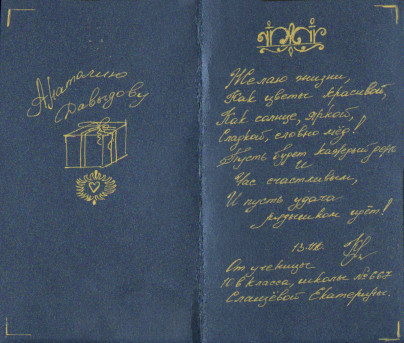 Анатолию
Давыдову
Желаю жизни,
Как цветы красивой,
Как солнце, яркой,
Сладкой, словно мёд!
Пусть будет каждый день
и
Час счастливым,
И пусть удача
рядышком идёт!
От ученицы
10 в класса, школы № 667
Слащёвой Екатерины.